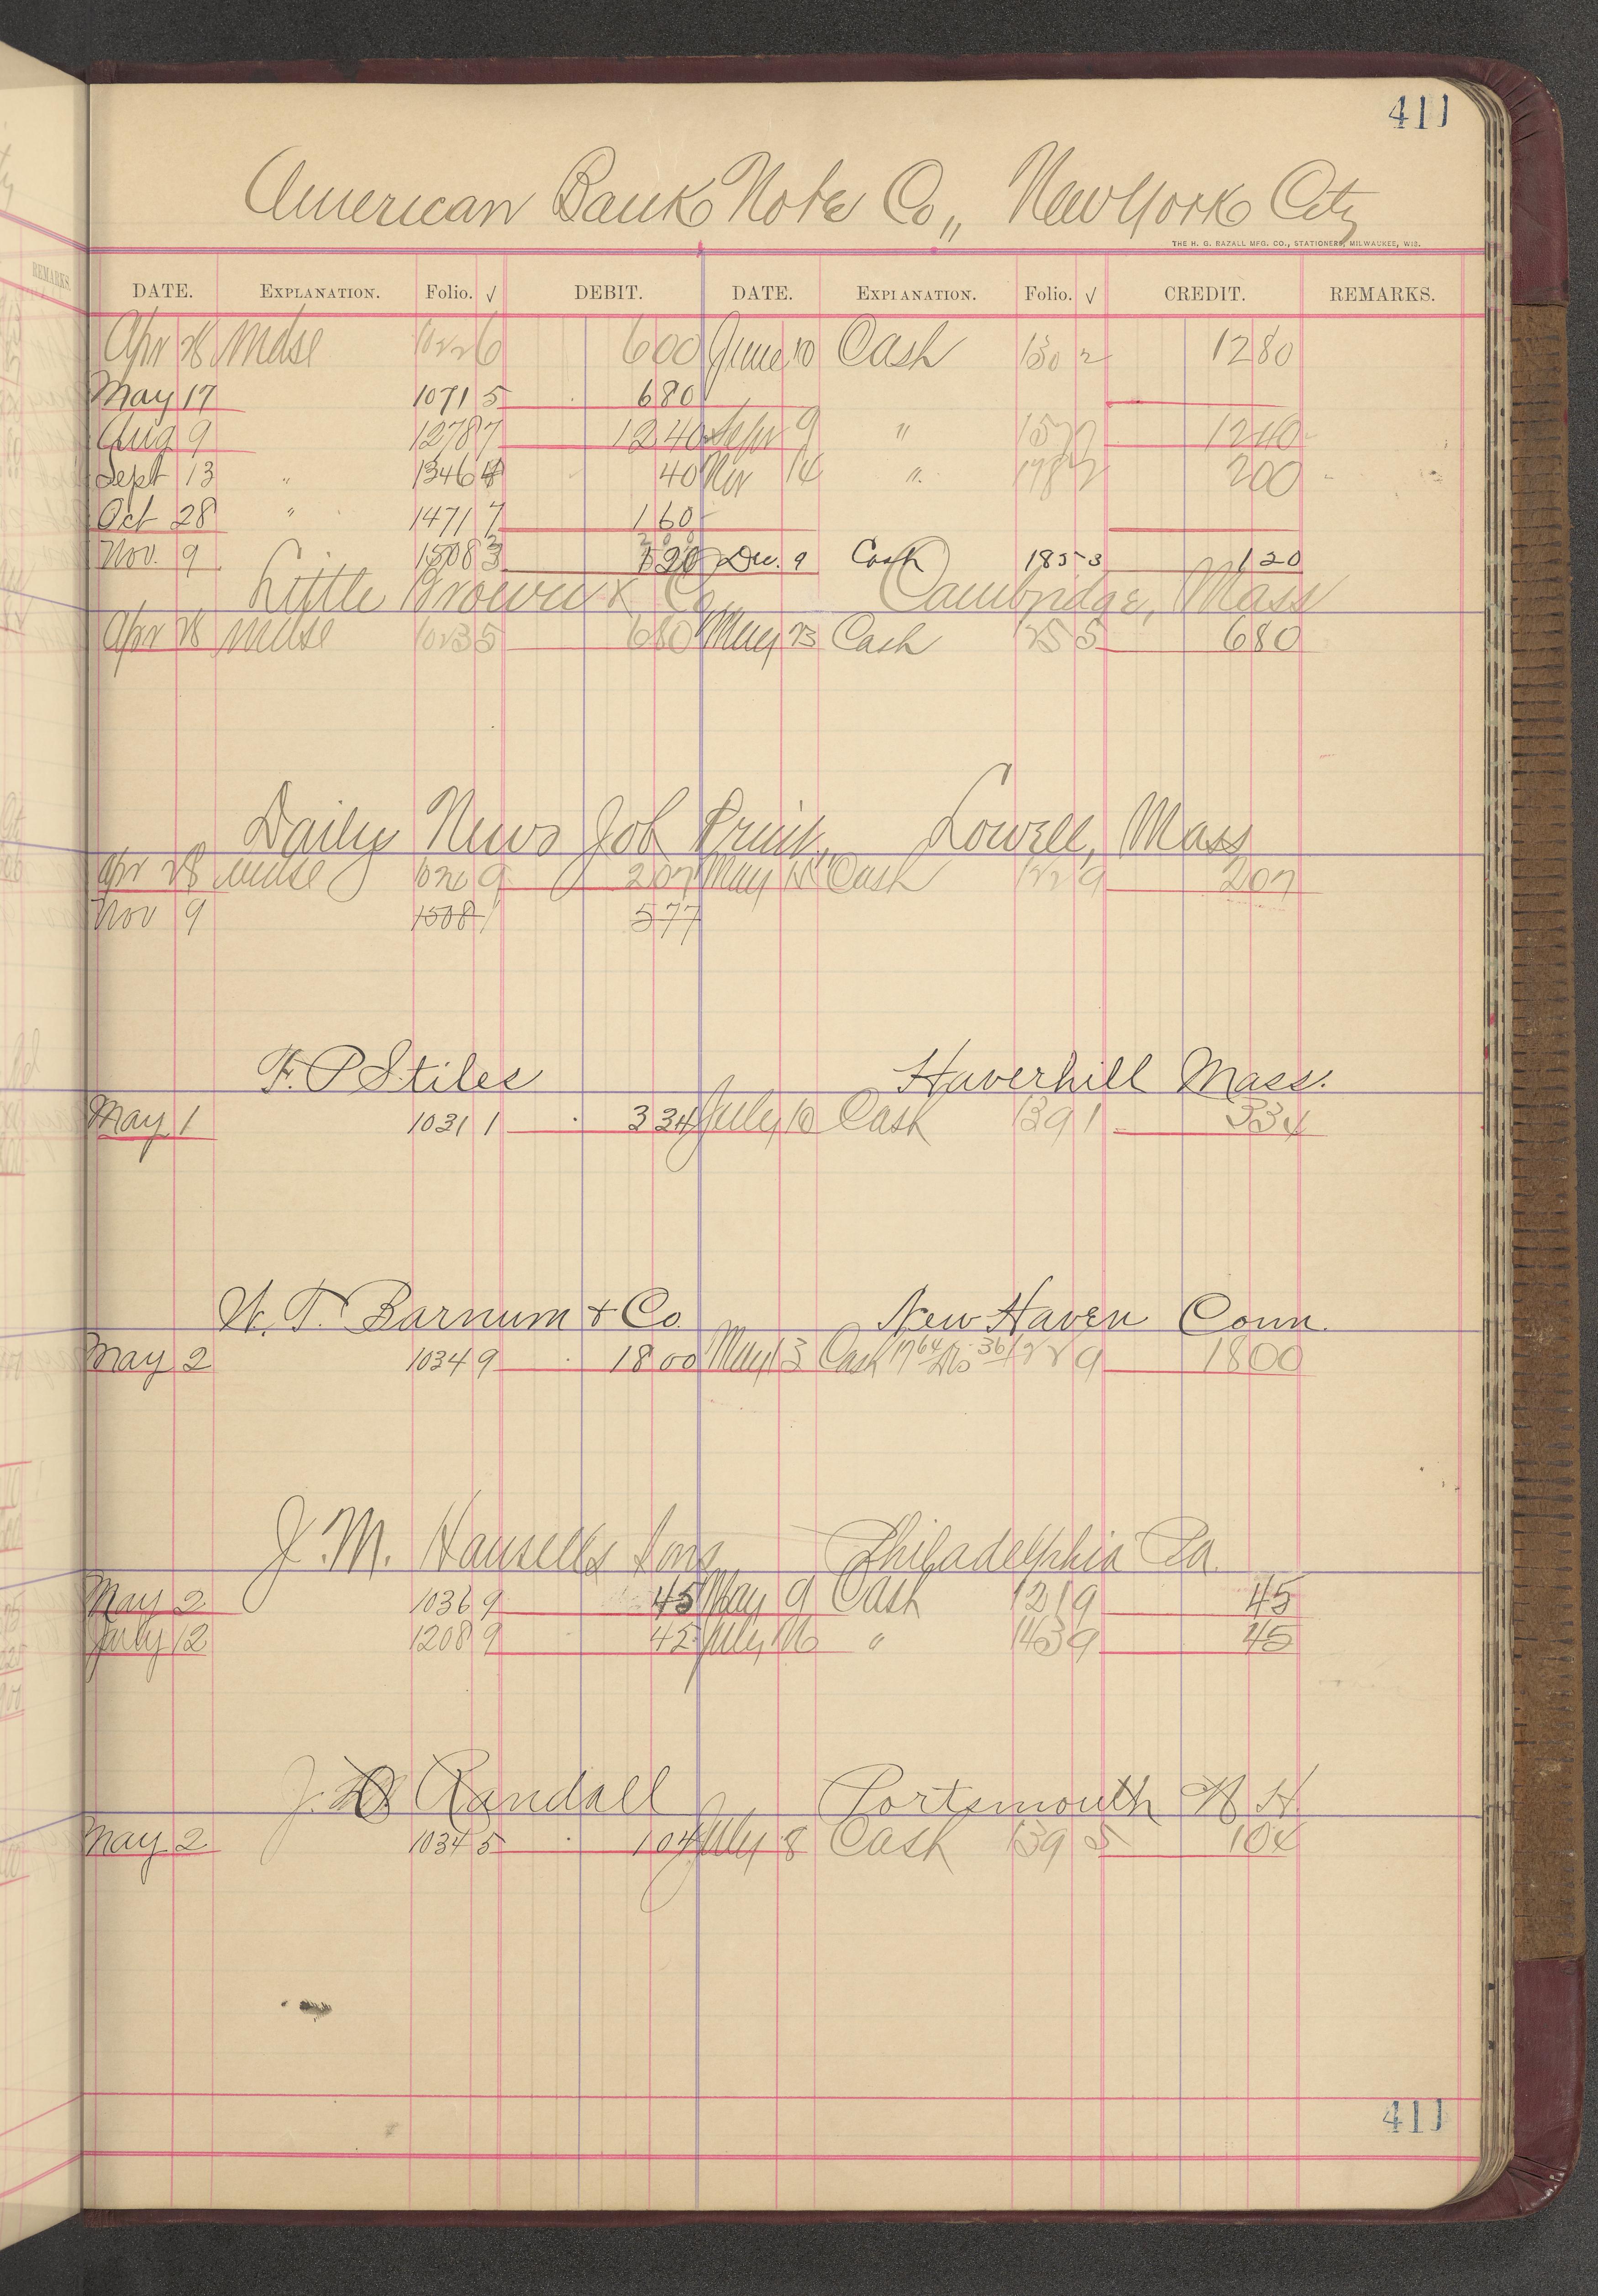 411
American Bank Note Co,, New York City
THE H. G. RAZALL MFG. CO., STATIONERS, MILWAUKEE, WIS.
DATE. EXPLANATION. Folio. √ DEBIT. DATE. EXPLANATION. Folio. √ CREDIT. REMARKS.
Apr 28 Mdse 102 6 600 June 10 Cash 130 2 1280
May 17 1071 5 680
Aug 9 1278 7 1240 Sept 9 " 157 1240
Sept 13 " 1346 40 Nov 14 " 178 2 200
Oct 28 " 1471 7 160
Nov. 9 1508 3 120 Dec. 9 Cash 185 3 120
Little Brown & Co Cambridge, Mass
Apr 28 Mdse 1023 5 680 May 23 Cash 125 5 680
Daily News Job Print, Lowell, Mass
Apr 28 Mdse 102 9 207 May 15 Cash 122 9 207
Nov 9 1508 1 577
F. P Stiles Haverhill Mass.
May 1 1031 1 334 July 10 Cash 139 1 334
W. T. Barnum & Co. New Haven Conn.
May 2 1034 9 1800 May 13 Cash 1764 36 122 9 1800
J. M. Hansells Sons Philadelphia Pa.
May 2 1036 9 45 May 9 Cash 121 9 45
July 12 1208 9 45 July 16 " 143 9 45
J. Randall Portsmouth N. H.
May 2 1034 5 104 July 8 Cash 139 5 104
411